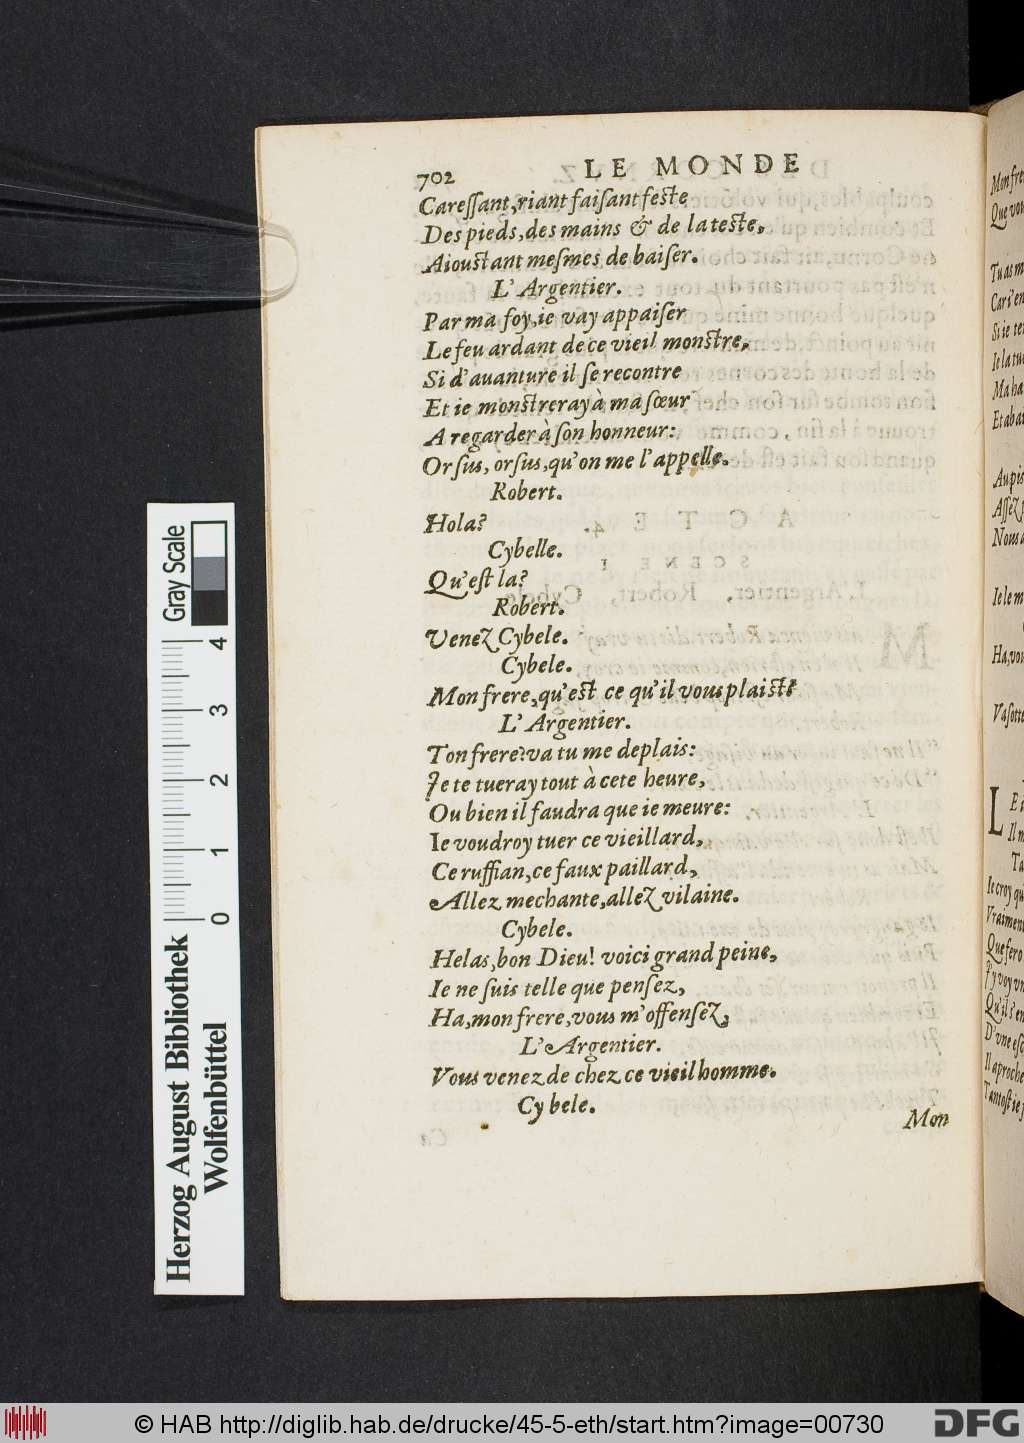 702 LE MONDE
Careſſant,riant faiſant feste
Des pieds,des mains & de la teste,
Aioustant meſmes de baiſer.
L' Argentier.
Par ma foy,ie vay appaiſer
Le feu ardant de ce vieil monstre,
Si d'auanture il ſe recontre
Et ie monstreray à ma sœur
A regarder à ſon honneur:
Or ſus, orſus,qu'on me l'appelle.
Robert.
Hola?
Cybelle.
Qu'eſt la?
Robert.
Venez Cybele.
Cybele.
Mon frere,qu'est ce qu'il vous plaist?
L' Argentier.
Ton frere?va tu me deplais:
Je te tueray tout à cete heure,
Ou bien il faudra que ie meure:
Ie voudroy tuer ce vieillard,
Ce ruffian,ce faux paillard,
Allez mechante,allez vilaine.
Cybele.
Helas,bon Dieu! voici grand peine,
Ie ne ſuis telle que penſez,
Ha,mon frere,vous m'offenſez,
L' Argentier.
Vous venez de chez ce vieil homme.
Cybele.
Mon
Mon fre
Que vou
Tu as m
Car i'en
Si ie te
Ie la tu
Ma ha
Et abat
Au pis
Aſſez
Nous
Ie le m
Ha,vou
Va ſotte
LE i
Il n
Ta
Ie croy qu
Vraiment
Que fero
J'y voy vn
Qu'il s'en
D'vne eſc
Il aproche
Tantoſt ie
Gray Scale
0 1 2 3 4
Herzog August Bibliothek
Wolfenbüttel
© HAB http://diglib.hab.de/drucke/45-5-eth/start.htm?image=00730
DFG